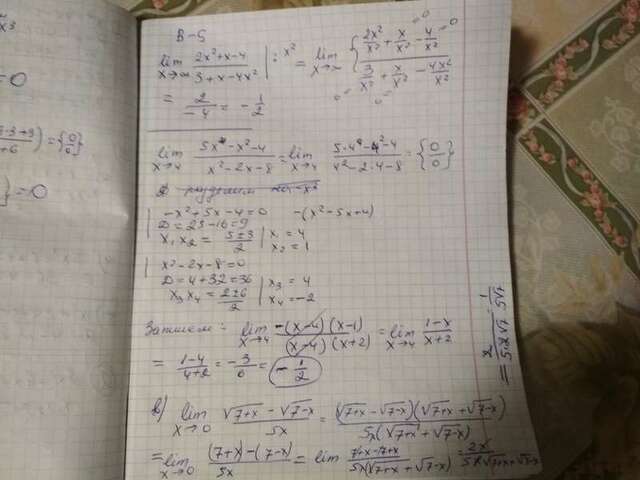 В-6
lim x→∞ (2x²+x-4)/(3+x-4x²) | : x² = lim x→∞ { (2x²/x² + x/x² - 4/x²)/(3/x² + x/x² - 4x²/x²)
= 2/-4 = -1/2
lim x→4 (5x-x²-4)/(x²-2x-8) = lim x→4 (5·4-4²-4)/(4²-2·4-8) = {0/0}
-x²+5x-4=0 -(x²-5x+4)
D=25-16=9
x₁ x₂ = (5±3)/2 | x₁ = 4 x₂ = 1
x²-2x-8=0
D=4+32=36
x₃ x₄ = (2±6)/2 | x₃ = 4 x₄ = -2
Запишем: lim x→4 -(x-4)(x-1)/(x-4)(x+2) = lim x→4 (1-x)/(x+2)
= (1-4)/(4+2) = -3/6 = -1/2
в) lim x→0 (√7+x - √7-x)/5x = (√7+x - √7-x)(√7+x + √7-x)/5x(√7+x + √7-x)
= lim x→0 (7+x)-(7-x)/5x = lim (7+x-7+x)/5x(√7+x + √7-x) = 2x/5x√7+x+√7-x